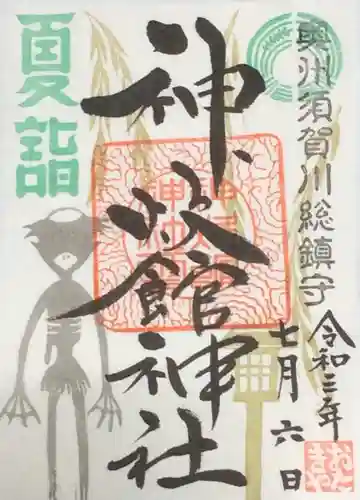 奥州須賀川総鎮守
令和三年
七月六日
神炊館神社
夏詣